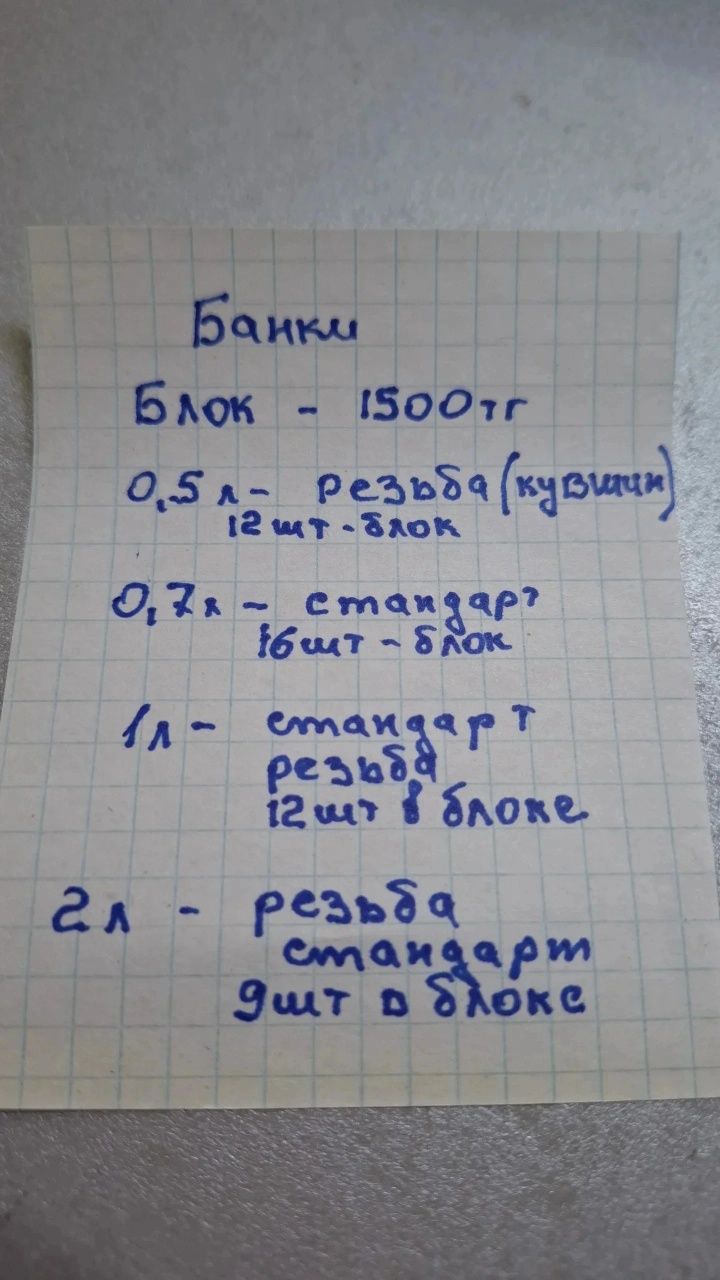 Банки
Блок - 1500тг
0,5 л - резьба (кувшин)
12 шт - блок
0,7 л - стандарт
16 шт - блок
1 л - стандарт
резьба
12 шт в блоке
2 л - резьба
стандарт
9 шт в блоке